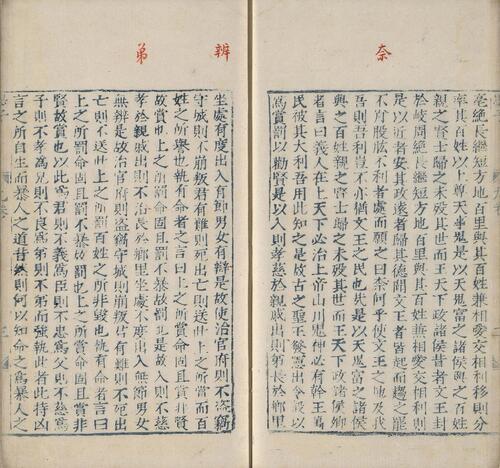 奈
亳絶長繼短方地百里與其百姓兼相愛交相利移則分
率其百姓以上尊天事鬼是以天鬼富之諸侯與之百姓
親之賢士歸之未殁其世而王天下政諸侯昔者文王封
於岐周絶長繼短方地百里與其百姓兼相愛交相利則
是以近者安其政遠者歸其德聞文王者皆起而趨之罷
不肖股肱不利者處而願之曰奈何乎使文王之地及我
吾則吾利豈不亦猶文王之民也是以天鬼富之諸侯
與之百姓親之賢士歸之未殁其世而王天下政諸侯鄉
者言曰義人在上天下必治上帝山川鬼神必有幹主萬
民彼其大利吾用此知之是故古之聖王發憲出令設以
爲賞罰以勸賢是以入則孝慈於親戚出則弟長於鄉里
辨
弟
坐處有度出入有節男女有辯是故使治官府則不盜竊
守城則不崩叛君有難則死出亡則送此上之所賞而百
姓之所譽也執有命者之言曰上之所賞命固且賞非賢
故賞也上之所罰命固且罰不暴故罰也是故入則不慈
孝於親戚出則不弟長於鄉里坐處不度出入無節男女
無辨是故治官府則盜竊守城則崩叛君有難則不死出
亡則不送此上之所罰百姓之所非毀也執有命者言曰
上之所罰命固且罰不暴故罰也上之所賞命固且賞非
賢故賞也以此爲君則不義爲臣則不忠爲父則不慈爲
子則不孝爲兄則不良爲弟則不弟而強執此者此特凶
言之所自生而暴人之道昔然則何以知命之爲暴人之